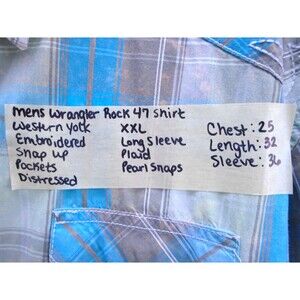 mens Wrangler Rock 47 Shirt
Western York
Embroidered
Snap up
Pockets
Distressed
XXL
Long Sleeve
Plaid
Pearl Snaps
Chest: 25
Length: 32
Sleeve: 36